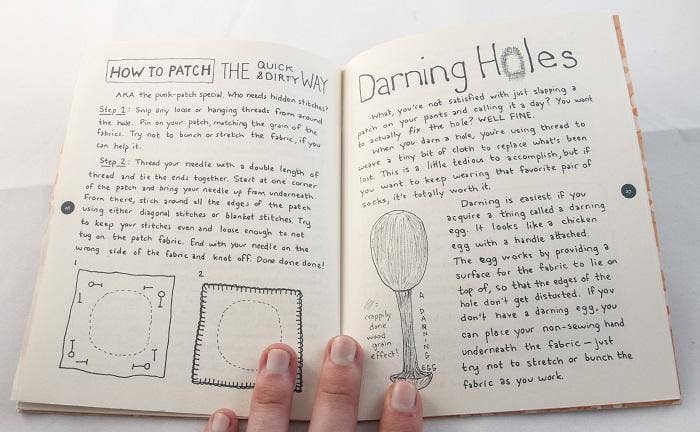 HOW TO PATCH THE QUICK & DIRTY WAY
AKA the punk-patch special. Who needs hidden stitches?
Step 1: Snip any loose or hanging threads from around
the hole. Pin on your patch, matching the grain of the
fabrics. Try not to bunch or stretch the fabric, if you
can help it.
Step 2: Thread your needle with a double length of
thread and tie the ends together. Start at one corner
of the patch and bring your needle up from underneath.
From there, stitch around all the edges of the patch
using either diagonal stitches or blanket stitches. Try
to keep your stitches even and loose enough to not
tug on the patch fabric. End with your needle on the
wrong side of the fabric and knot off. Done done done!
1
2
Darning Holes
What, you're not satisfied with just slapping a
patch on your pants and calling it a day? You want
to actually fix the hole? WELL FINE.
When you darn a hole, you're using thread to
weave a tiny bit of cloth to replace what's been
lost. This is a little tedious to accomplish, but if
you want to keep wearing that favorite pair of
socks, it's totally worth it.
Darning is easiest if you
acquire a thing called a darning
egg. It looks like a chicken
egg with a handle attached.
The egg works by providing a
surface for the fabric to lie on
top of, so that the edges of the
hole don't get distorted. If you
don't have a darning egg, you
can place your non-sewing hand
underneath the fabric — just
try not to stretch or bunch the
fabric as you work.
A DARNING EGG
crappily
done
wood
grain
effect!